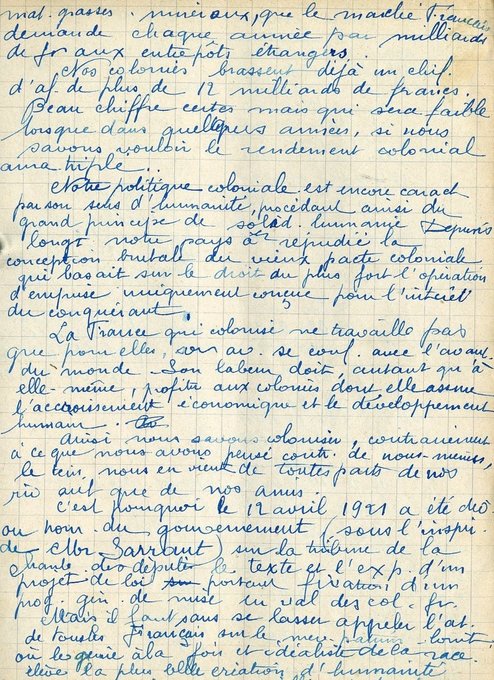 mat. grasses. minéraux, que le marché Français
demande chaque année par milliards
de fr aux entrepôts étrangers.
Nos colonies brassent déjà un chif.
d'af. de plus de 12 milliards de francs.
Beau chiffre certes mais qui sera faible
lorsque dans quelques années, si nous
savons vouloir le rendement colonial
aura triplé..
Notre politique coloniale est encore caract
par son sens d'humanité, procédant ainsi du
grand principe de solid. humaine Depuis
longt notre pays a répudié la
conception brutale du vieux pacte coloniale
qui basait sur le droit du plus fort l'opération
d'emprise uniquement conçue pour l'intérêt
du conquérant.
La France qui colonise ne travaille pas
que pour elle, son av. se conf. avec l'avant.
du monde. Son labeur doit, autant qu'à
elle-même, profiter aux colonies dont elle assume
l'accroissement économique et le développement
humain.
Ainsi nous savons coloniser, contrairement
à ce que nous avons pensé contr. de nous-mêmes,
le tém. nous en vient de toutes parts de nos
riv aut que de nos amis.
C'est pourquoi le 12 avril 1921 a été dép
au nom du gouvernement (sous l'inspi.
de Mr. Sarraut) sur la tribune de la
chambe des députés le texte et l'exp. d'un
projet de loi portant fixation d'un
prog. gén. de mise en val des col. fr.
Mais il faut sans se lasser appeler l'at.
de tous les Français sur le
où le génie à la fois et idéaliste de la race
élève la plus belle création d'humanité